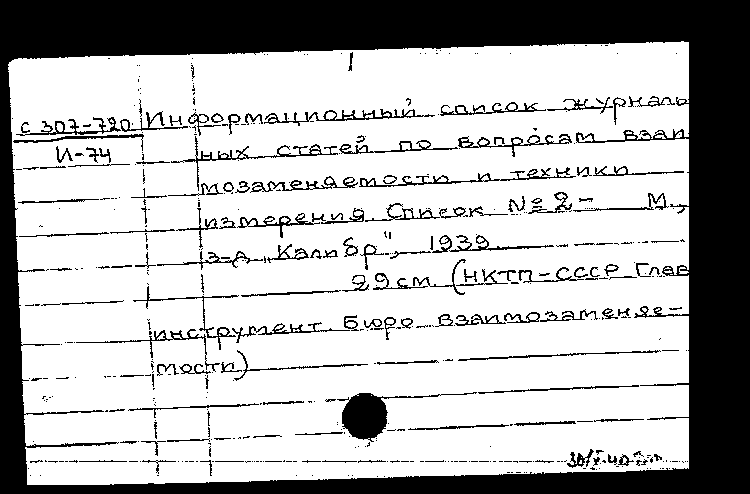 с 307-720 Информационный список журналь
И-74 ных статей по вопросам взаи
мозаменяемости и техники
измерения. Список № 2- М.,
з-д „Калибр", 1939.
29 см. (НКТП-СССР Глав
инструмент. Бюро взаимозаменяе-
мости)